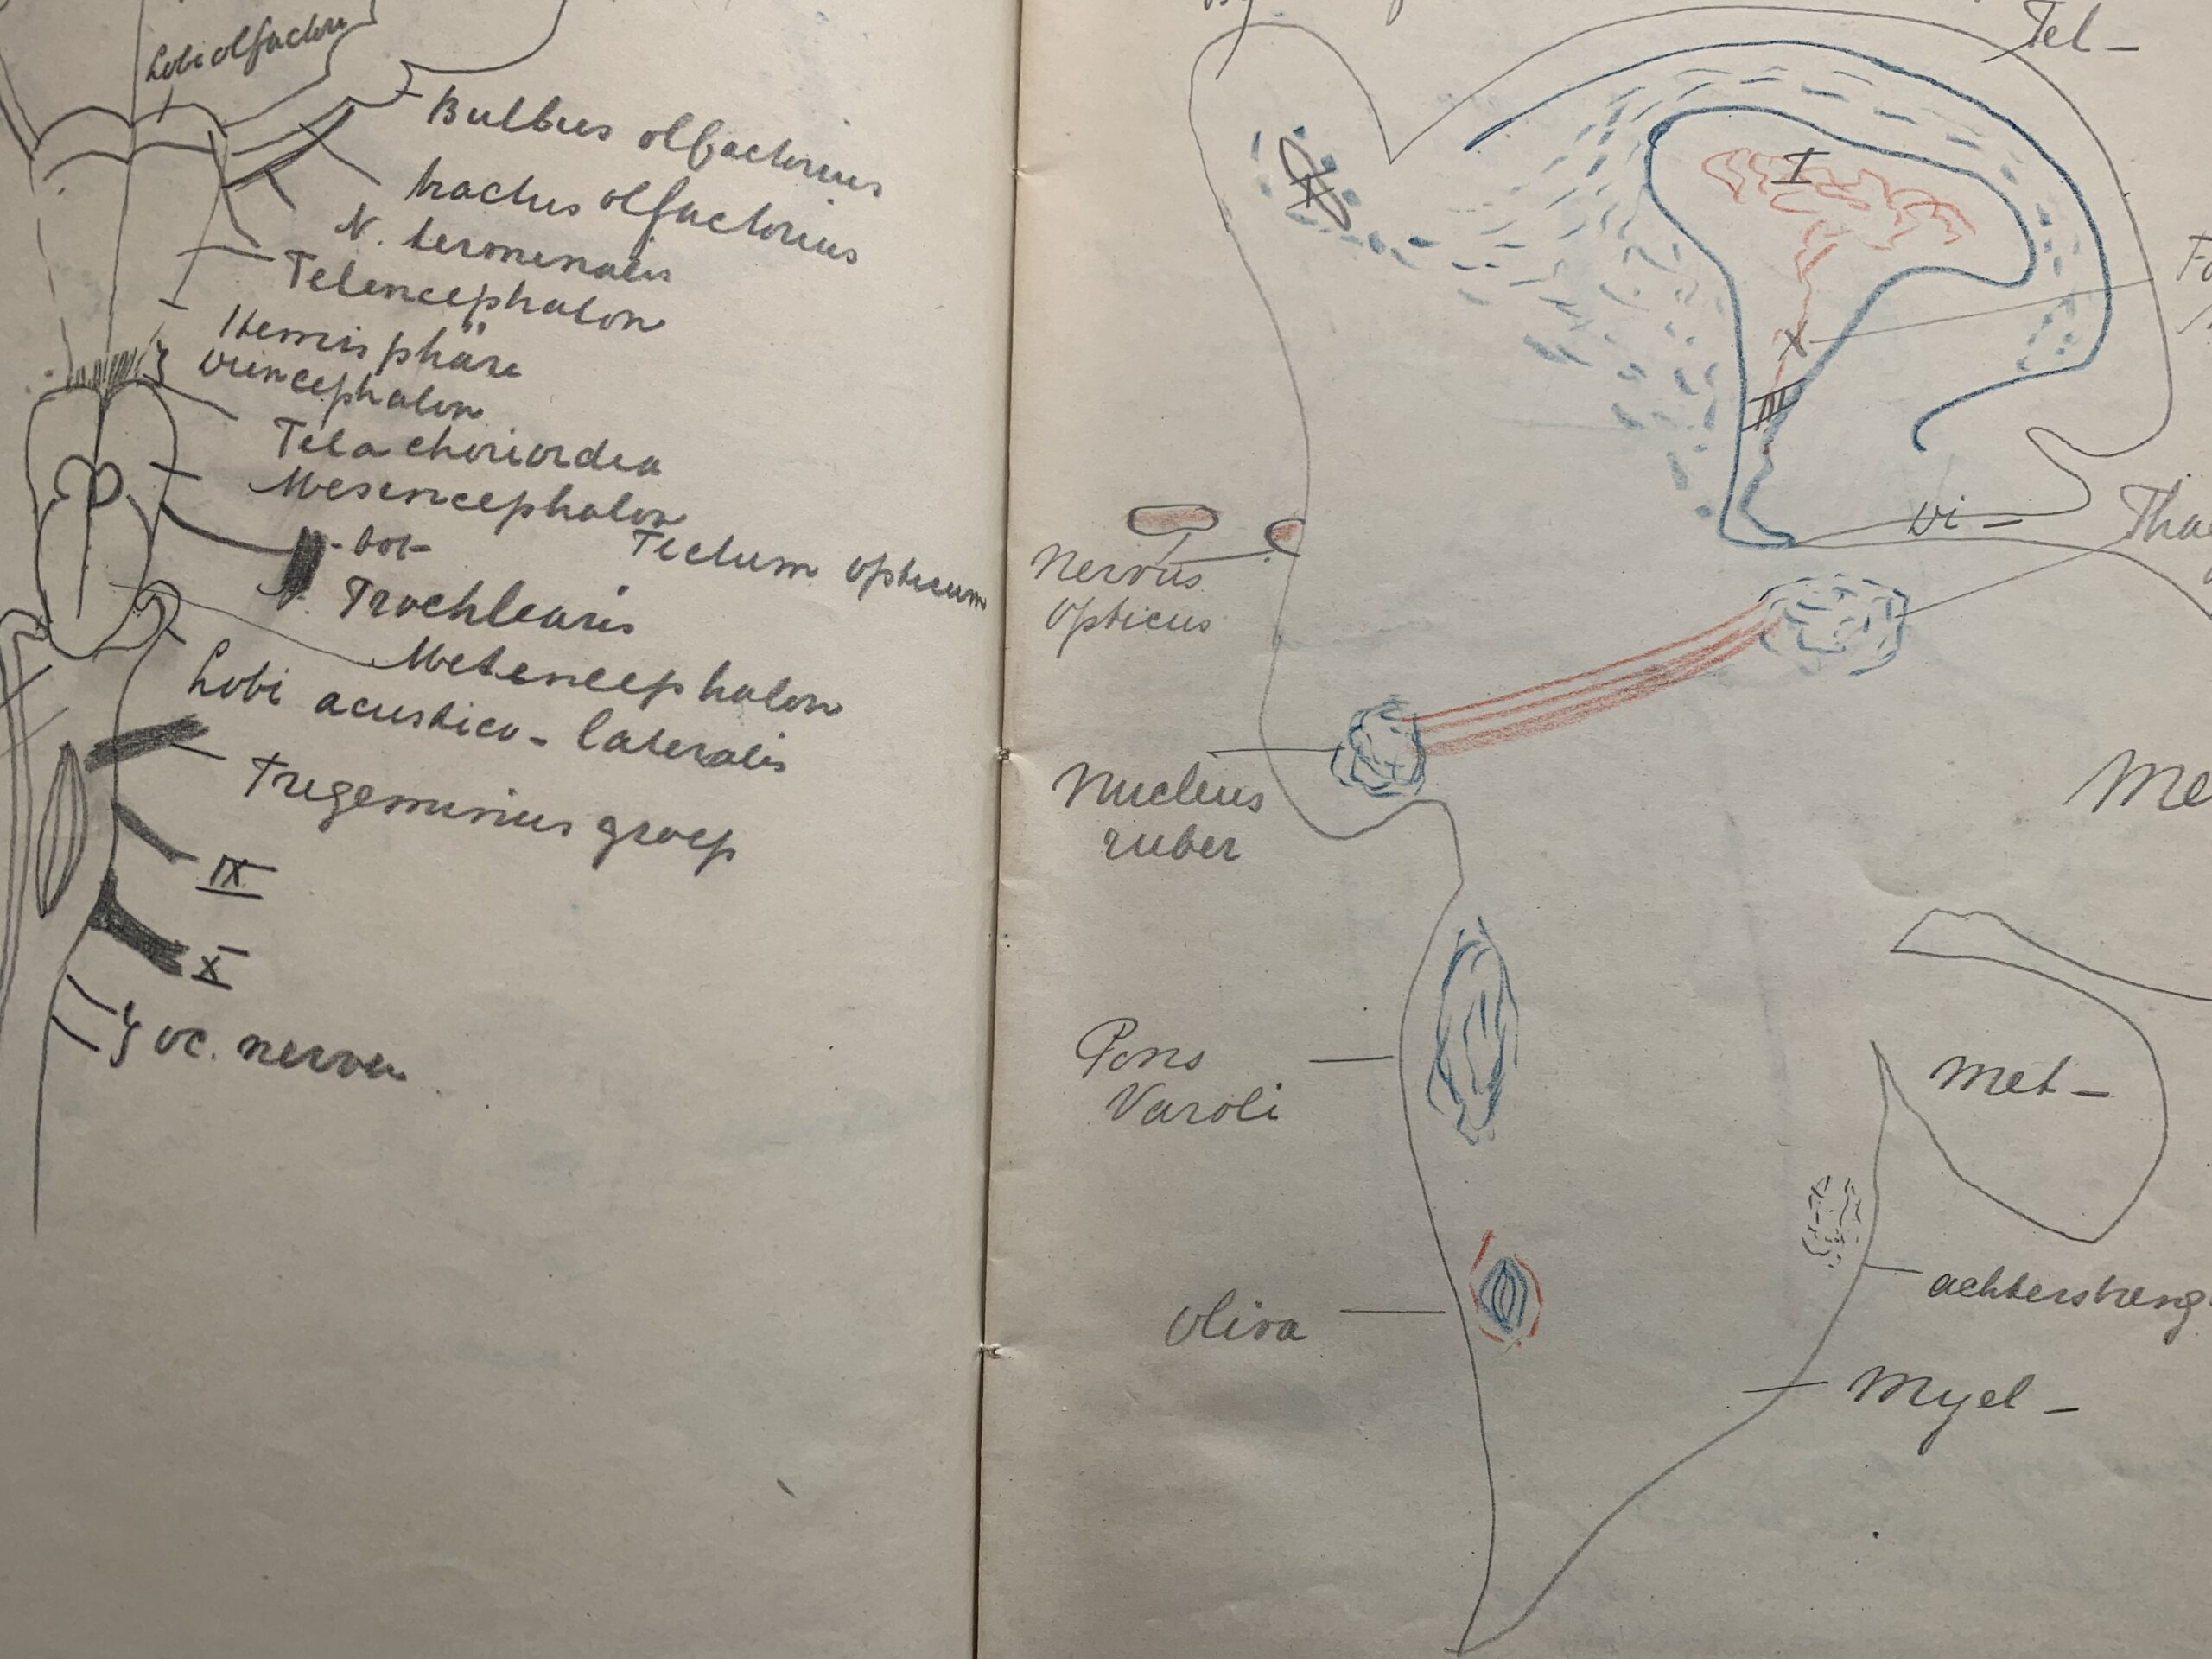 Lobi olfactorii
Bulbus olfactorius
tractus olfactorius
N. terminalis
Telencephalon
Hemisphäre
Diencephalon
Tela chorioidea
Mesencephalon
Tectum opticum
Trochlearis
Metencephalon
Lobi acustico-lateralis
Trigeminus groep
IX
X
nerven
Tel-
I
X
III
Di-
Nervus
opticus
Nucleus
ruber
Me
Pons
Varoli
Met-
achterstreng
Oliva
Myel-